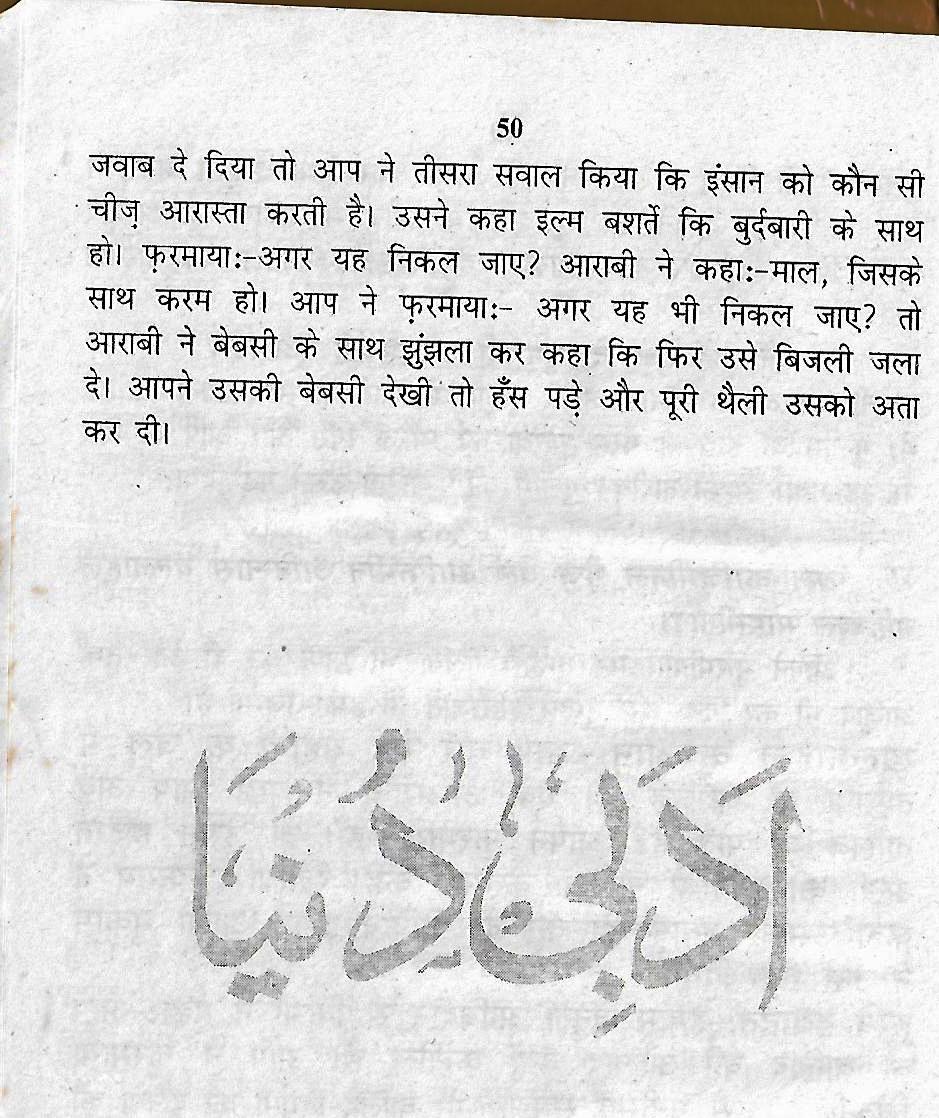 50
जवाब दे दिया तो आप ने तीसरा सवाल किया कि इंसान को कौन सी
चीज़ आरास्ता करती है। उसने कहा इल्म बशर्ते कि बुर्दबारी के साथ
हो। फ़रमाया:-अगर यह निकल जाए? आराबी ने कहा:-माल, जिसके
साथ करम हो। आप ने फ़रमाया:- अगर यह भी निकल जाए? तो
आराबी ने बेबसी के साथ झुंझला कर कहा कि फिर उसे बिजली जला
दे। आपने उसकी बेबसी देखी तो हँस पड़े और पूरी थैली उसको अता
कर दी।
اَدَبِیْ دُنْیَا